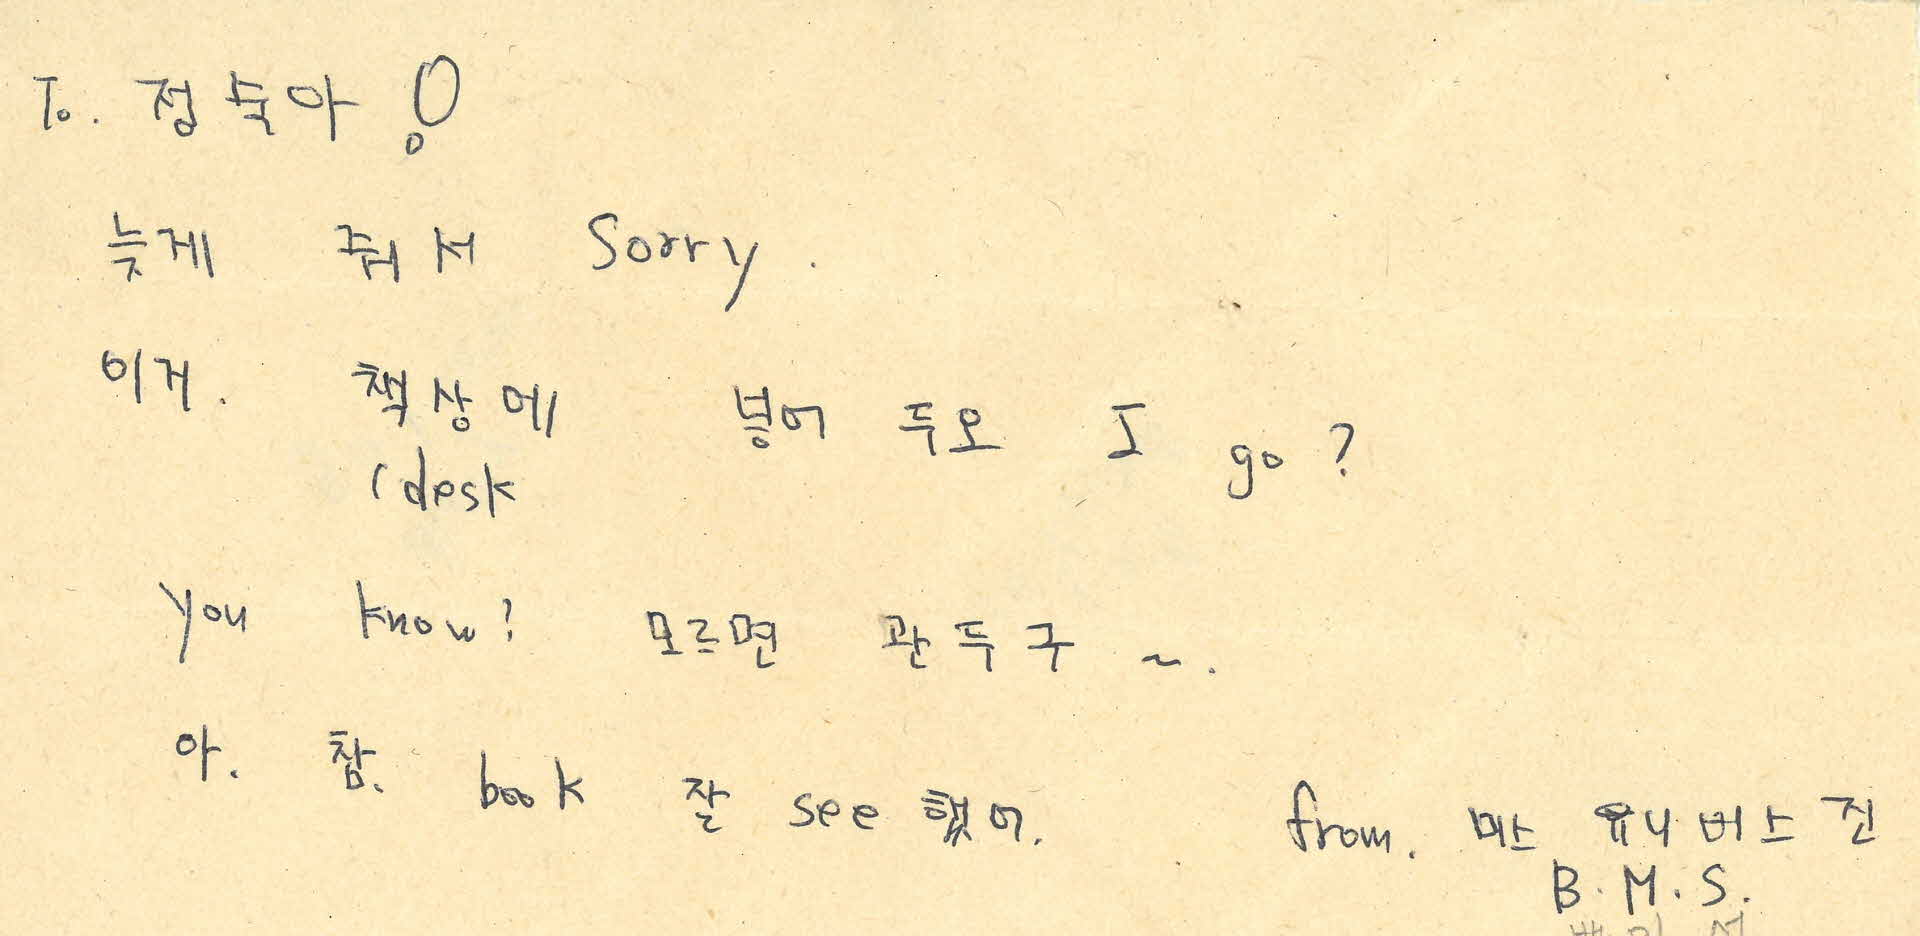 To. 정숙아!
늦게 줘서 Sorry.
이거. 책상에 붙어 두오 I go?
(desk
you know? 모르면 관두구~.
아. 참. book 잘 see 했어.
from. 미스 유니버스 진
B.M.S.